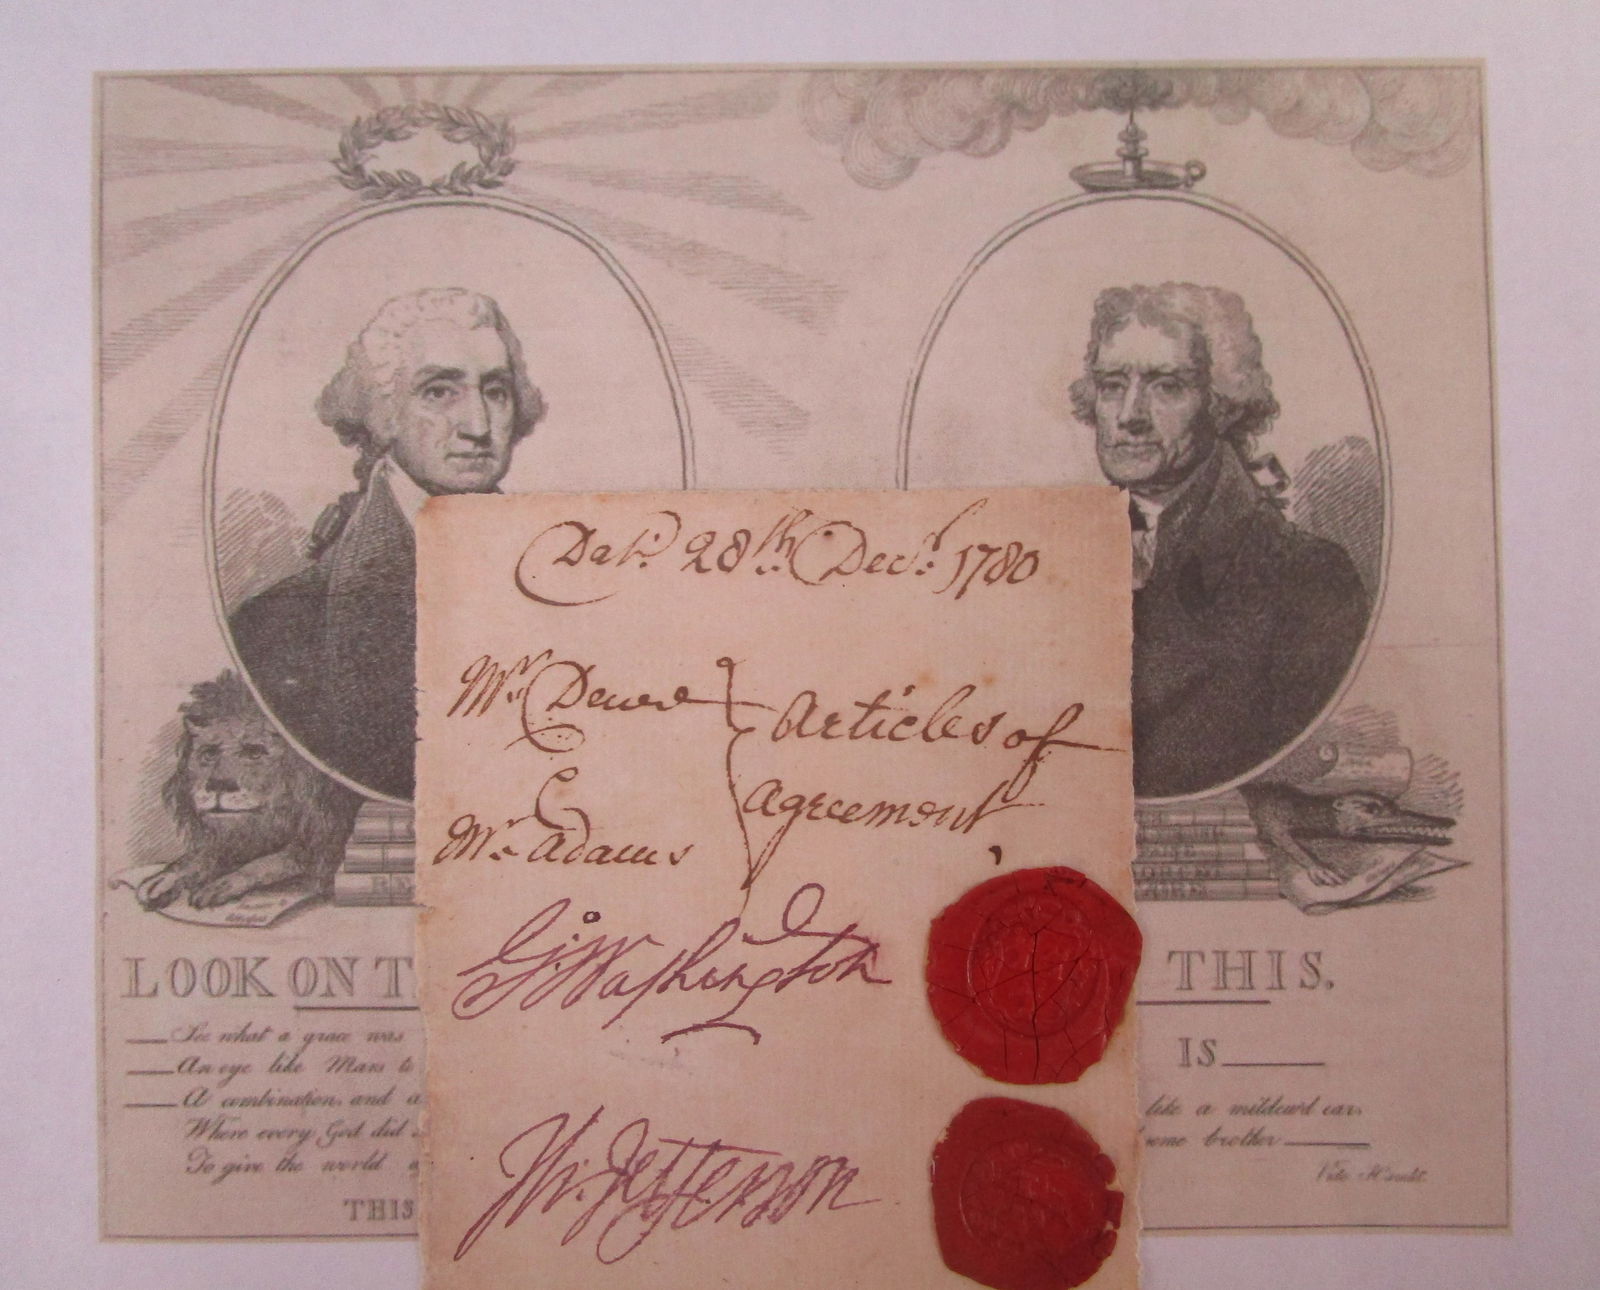 Dat.d 28th Decr. 1780
Mr. Dewe
&
Mr. Adams
Articles of
Agreement
G:Washington
Th. Jefferson
LOOK ON T
THIS.
See what a grace was
An eye like Mars to
A combination and a
Where every God did
To give the world
THIS
IS
like a mildew'd ear
some brother
Vide Hamlet.